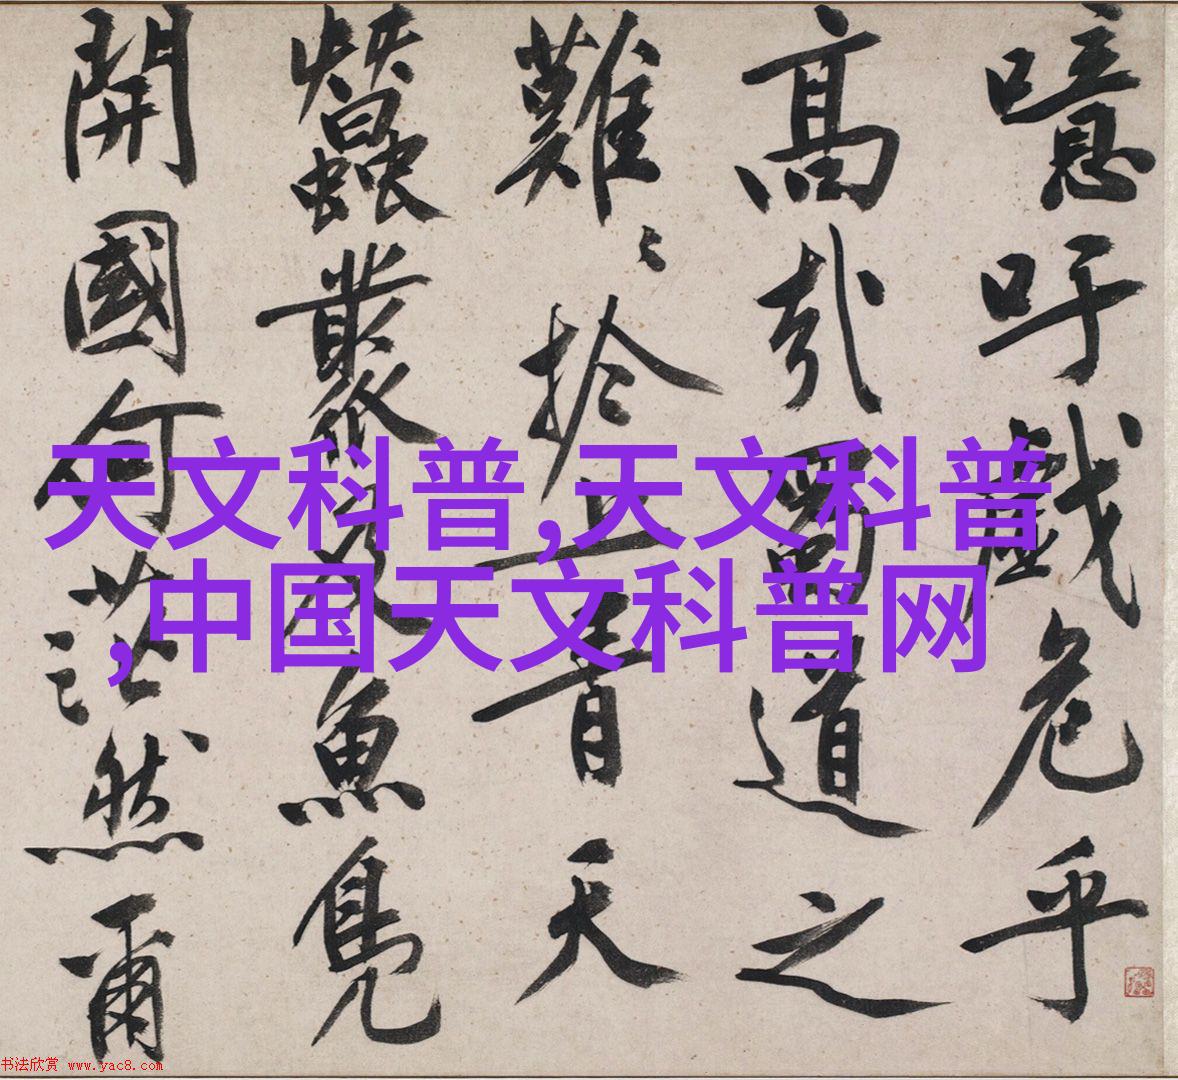 噫吁戲危乎
高哉蜀道之
難〻於上青天
蠶叢及魚鳧
開國何茫然爾
天文科普,天文科普
,中国天文科普网
书法欣赏 www.yac8.com